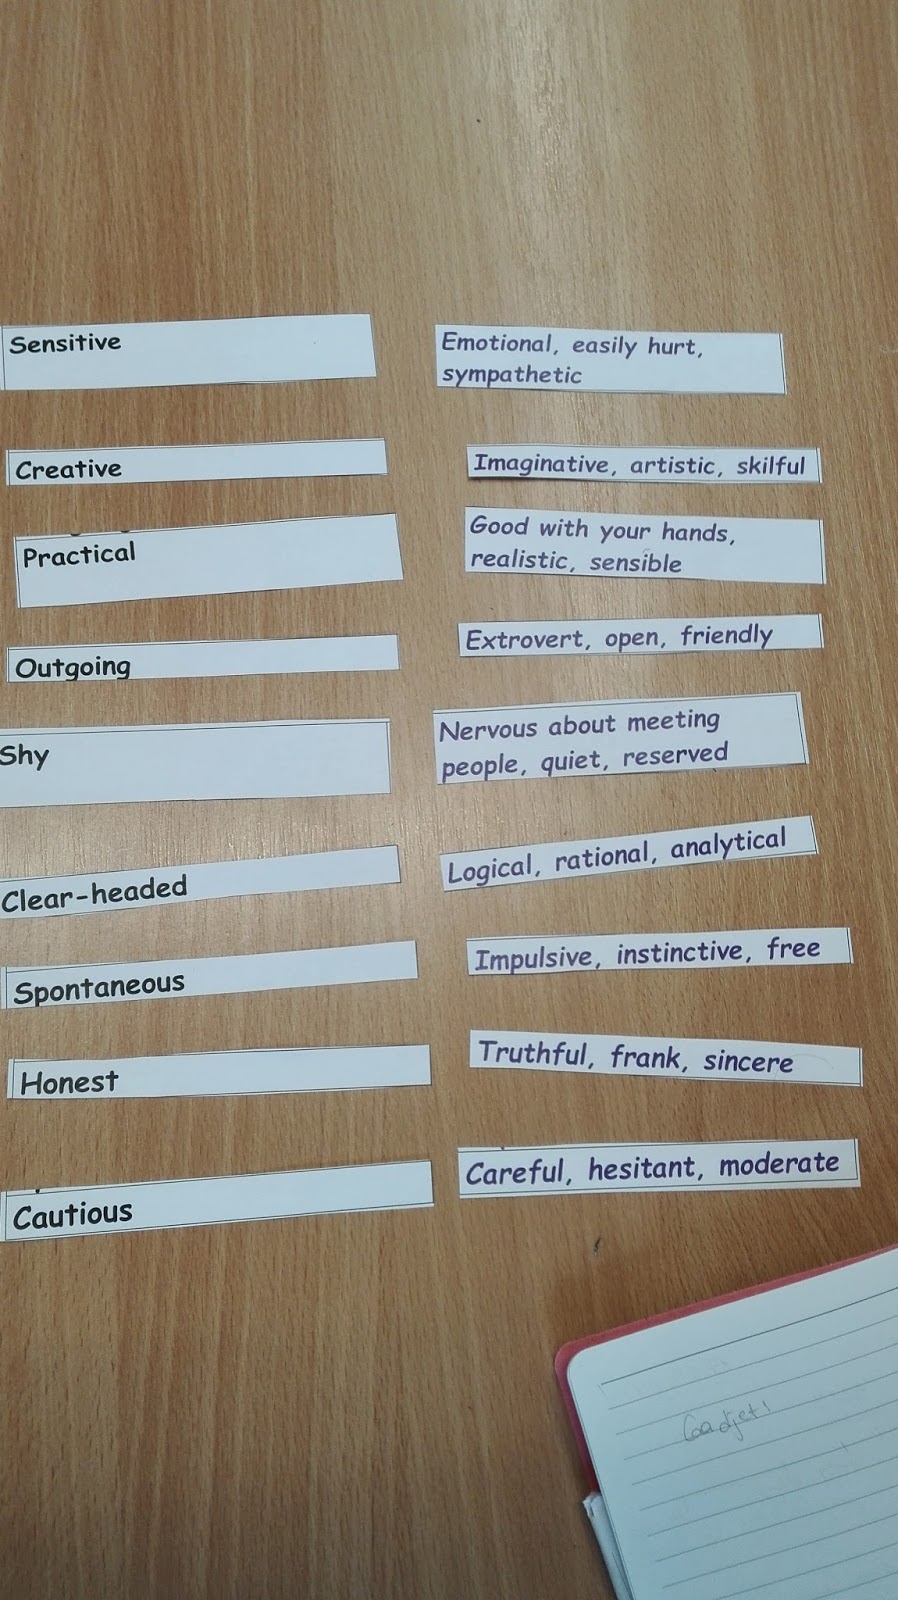 Sensitive
Emotional, easily hurt,
sympathetic
Creative
Imaginative, artistic, skilful
Practical
Good with your hands,
realistic, sensible
Outgoing
Extrovert, open, friendly
Shy
Nervous about meeting
people, quiet, reserved
Clear-headed
Logical, rational, analytical
Spontaneous
Impulsive, instinctive, free
Honest
Truthful, frank, sincere
Cautious
Careful, hesitant, moderate